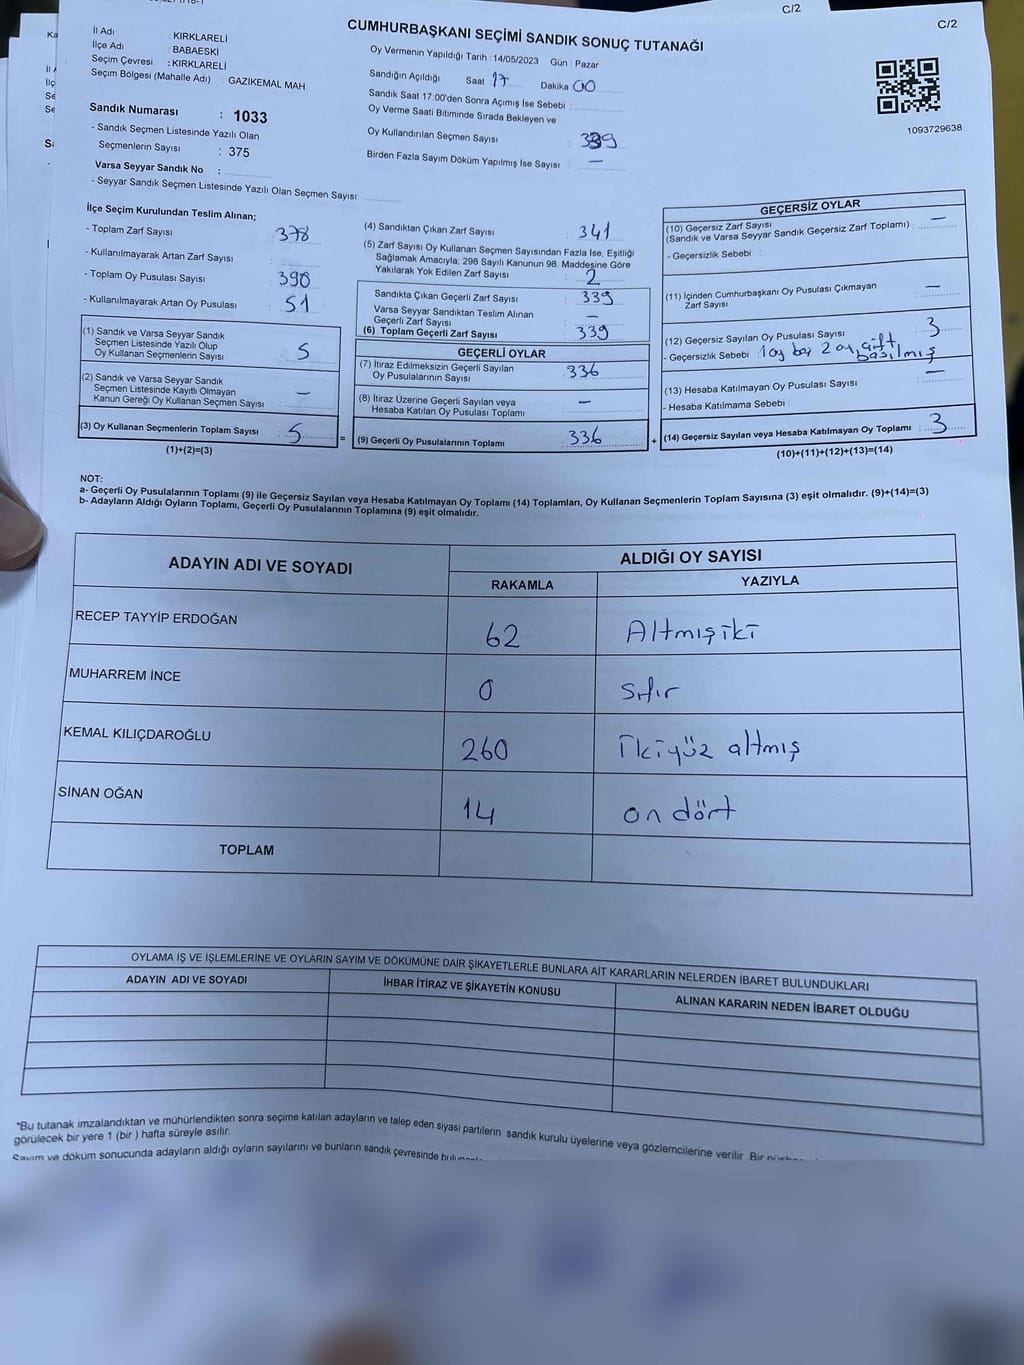 C/2
C/2
CUMHURBAŞKANI SEÇİMİ SANDIK SONUÇ TUTANAĞI
İl Adı : KIRKLARELİ
İlçe Adı : BABAESKİ
Seçim Çevresi : KIRKLARELİ
Seçim Bölgesi (Mahalle Adı) : GAZIKEMAL MAH
Sandık Numarası : 1033
- Sandık Seçmen Listesinde Yazılı Olan
Seçmenlerin Sayısı : 375
Varsa Seyyar Sandık No :
- Seyyar Sandık Seçmen Listesinde Yazılı Olan Seçmen Sayısı:
Oy Vermenin Yapıldığı Tarih : 14/05/2023 Gün : Pazar
Sandığın Açıldığı Saat 17 Dakika 00
Sandık Saat 17.00'den Sonra Açımış İse Sebebi :
Oy Verme Saati Bitiminde Sırada Bekleyen ve
Oy Kullandırılan Seçmen Sayısı : 339
Birden Fazla Sayım Döküm Yapılmış İse Sayısı : —
1093729638
İlçe Seçim Kurulundan Teslim Alınan;
- Toplam Zarf Sayısı : 378
- Kullanılmayarak Artan Zarf Sayısı :
- Toplam Oy Pusulası Sayısı : 390
- Kullanılmayarak Artan Oy Pusulası : 51
(1) Sandık ve Varsa Seyyar Sandık
Seçmen Listesinde Yazılı Olup
Oy Kullanan Seçmenlerin Sayısı : 5
(2) Sandık ve Varsa Seyyar Sandık
Seçmen Listesinde Kayıtlı Olmayan
Kanun Gereği Oy Kullanan Seçmen Sayısı : —
(3) Oy Kullanan Seçmenlerin Toplam Sayısı : 5
(1)+(2)=(3)
(4) Sandıktan Çıkan Zarf Sayısı : 341
(5) Zarf Sayısı Oy Kullanan Seçmen Sayısından Fazla İse, Eşitliği
Sağlamak Amacıyla; 298 Sayılı Kanunun 98. Maddesine Göre
Yakılarak Yok Edilen Zarf Sayısı : 2
Sandıkta Çıkan Geçerli Zarf Sayısı : 339
Varsa Seyyar Sandıktan Teslim Alınan
Geçerli Zarf Sayısı : —
(6) Toplam Geçerli Zarf Sayısı : 339
GEÇERLİ OYLAR
(7) İtiraz Edilmeksizin Geçerli Sayılan
Oy Pusulalarının Sayısı : 336
(8) İtiraz Üzerine Geçerli Sayılan veya
Hesaba Katılan Oy Pusulası Toplamı : —
= (9) Geçerli Oy Pusulalarının Toplamı : 336 +
GEÇERSİZ OYLAR
(10) Geçersiz Zarf Sayısı
(Sandık ve Varsa Seyyar Sandık Geçersiz Zarf Toplamı) : —
- Geçersizlik Sebebi :
(11) İçinden Cumhurbaşkanı Oy Pusulası Çıkmayan
Zarf Sayısı : —
(12) Geçersiz Sayılan Oy Pusulası Sayısı : 3
- Geçersizlik Sebebi : 1 oy boş 2 oy çift
basılmış
(13) Hesaba Katılmayan Oy Pusulası Sayısı : —
- Hesaba Katılmama Sebebi :
(14) Geçersiz Sayılan veya Hesaba Katılmayan Oy Toplamı : 3
(10)+(11)+(12)+(13)=(14)
NOT:
a- Geçerli Oy Pusulalarının Toplamı (9) ile Geçersiz Sayılan veya Hesaba Katılmayan Oy Toplamı (14) Toplamları, Oy Kullanan Seçmenlerin Toplam Sayısına (3) eşit olmalıdır. (9)+(14)=(3)
b- Adayların Aldığı Oyların Toplamı, Geçerli Oy Pusulalarının Toplamına (9) eşit olmalıdır.
ADAYIN ADI VE SOYADI ALDIĞI OY SAYISI
RAKAMLA YAZIYLA
RECEP TAYYİP ERDOĞAN 62 Altmışiki
MUHARREM İNCE 0 Sıfır
KEMAL KILIÇDAROĞLU 260 İkiyüz altmış
SİNAN OĞAN 14 on dört
TOPLAM
OYLAMA İŞ VE İŞLEMLERİNE VE OYLARIN SAYIM VE DÖKÜMÜNE DAİR ŞİKAYETLERLE BUNLARA AİT KARARLARIN NELERDEN İBARET BULUNDUKLARI
ADAYIN ADI VE SOYADI İHBAR İTİRAZ VE ŞİKAYETİN KONUSU ALINAN KARARIN NEDEN İBARET OLDUĞU
*Bu tutanak imzalandıktan ve mühürlendikten sonra seçime katılan adayların ve talep eden siyasi partilerin sandık kurulu üyelerine veya gözlemcilerine verilir. Bir
görülecek bir yere 1 (bir ) hafta süreyle asılır.
Sayım ve döküm sonucunda adayların aldığı oyların sayılarını ve bunların sandık çevresinde